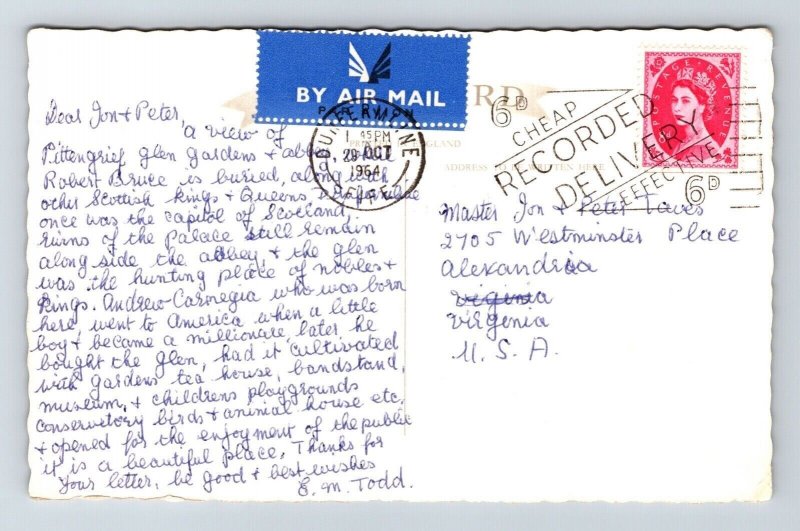 Dear Jon & Peter,
a view of
Pittengrief glen gardens & abbey
Robert Bruce is buried, along with
other Scottish kings & Queens, Dunfermline
once was the capitol of Scotland,
ruins of the Palace still remain
along side the abbey, & the glen
was the hunting place of nobles &
kings. Andrew Carnegia who was born
here, went to America when a little
boy & became a millionaire, later he
bought the Glen, had it cultivated
with gardens tea house, bandstand,
museum, & childrens playgrounds
conservitory birds & animal house etc.
& opened for the enjoyment of the public
it is a beautiful place. Thanks for
your letter, be good & best wishes
E. M. Todd.
BY AIR MAIL
PAR AVION
RD
ENGLAND
ADDRESS TO BE WRITTEN HERE
DUNFERMLINE
1 45PM
29 OCT
1964
FIFE
6D
CHEAP
RECORDED
DELIVERY
EFFECTIVE
6D
POSTAGE REVENUE
Master Jon & Peter Taves
2705 Westminster Place
Alexandria
viginia
Virginia
U. S. A.